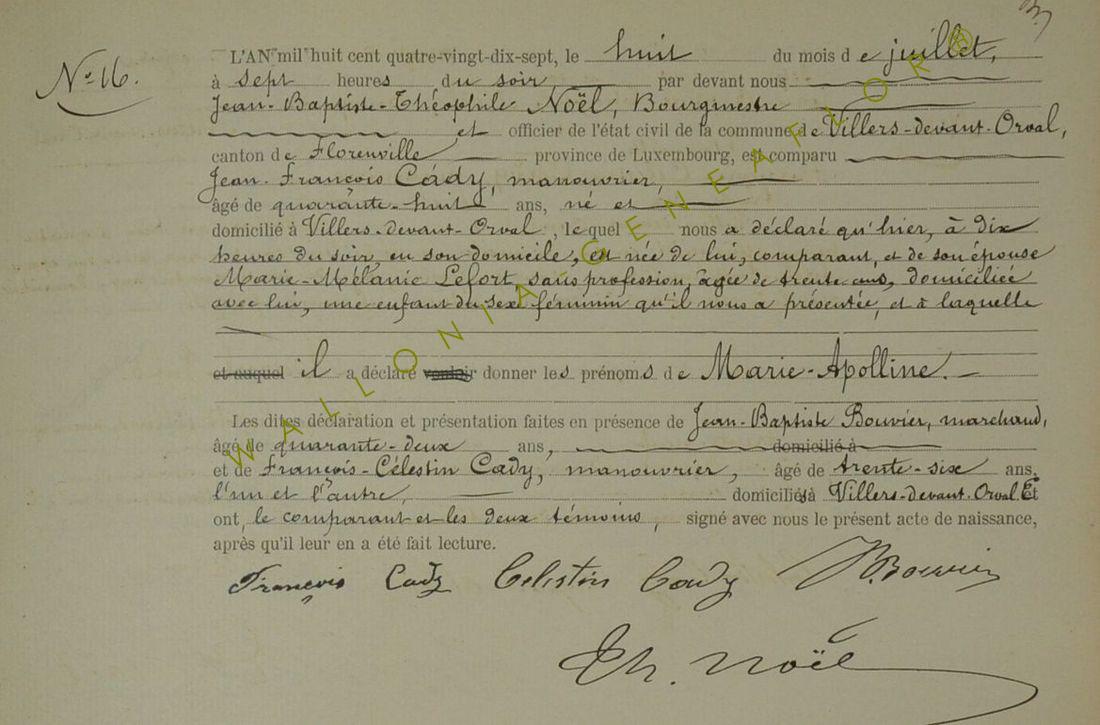 N° 16.
L'AN mil huit cent quatre-vingt-dix-sept, le huit du mois de juillet,
à sept heures du soir par devant nous
Jean-Baptiste-Théophile Noël, Bourgmestre
et officier de l'état civil de la commune de Villers-devant-Orval,
canton de Florenville province de Luxembourg, est comparu
Jean-François Cády, manouvrier,
âgé de quarante-huit ans, né et
domicilié à Villers-devant-Orval, lequel nous a déclaré qu'hier, à dix
heures du soir, en son domicile, est née de lui, comparant, et de son épouse
Marie-Mélanie Lefort, sans profession, âgée de trente ans, domiciliée
avec lui, une enfant du sexe féminin qu'il nous a présentée, et à laquelle
et auquel il a déclaré vouloir donner les prénoms de Marie-Apolline.
Les dites déclaration et présentation faites en présence de Jean-Baptiste Bouvier, marchand,
âgé de quarante-deux ans, domicilié à
et de François-Célestin Cady, manouvrier, âgé de trente-six ans,
l'un et l'autre, domiciliés à Villers-devant-Orval. Et
ont, le comparant et les deux témoins, signé avec nous le présent acte de naissance,
après qu'il leur en a été fait lecture.
François Cady Celestin Cady JB. Bouvier
Th. Noël
WALLONIA-GENEAFLOR®